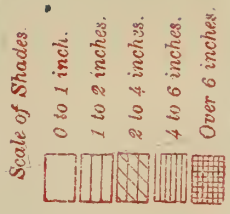 Scale of Shades.
0 to 1 inch.
1 to 2 inches.
2 to 4 inches.
4 to 6 inches.
Over 6 inches.